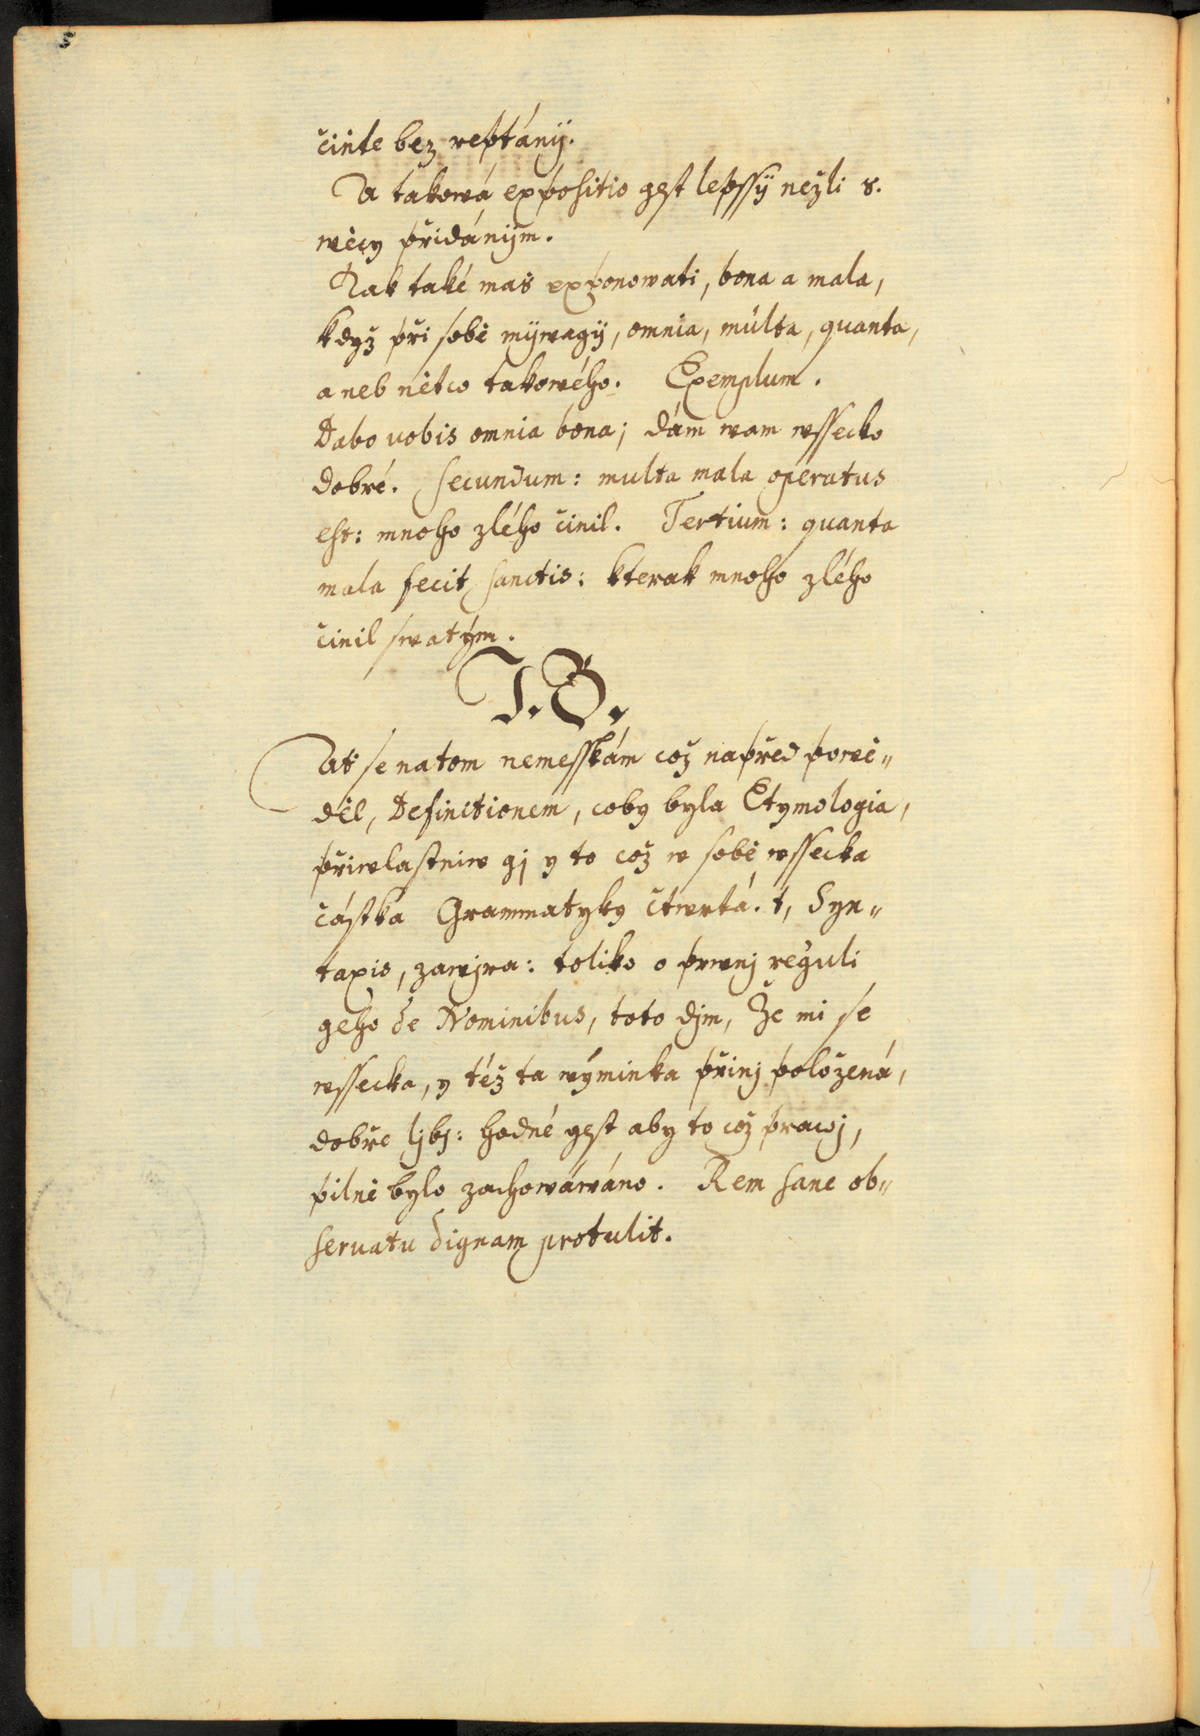 čiňte bez reptánij.
A taková expositio gest lepssij nežli s.
wěcy přidánijm.
Tak také máš exponowati, bona a mala,
když při sobě mijwagij, omnia, múlta, quanta,
aneb nětco takového. Exemplum.
Dabo uobis omnia bona; dám wam wssecko
dobré. Secundum: multa mala operatus
est: mnoho zlého činil. Tertium: quanta
mala fecit sanctis: kterak mnoho zlého
činil swatým.
J. B.
Ať se na tom nemesskám což napřed powě„
děl, Definitionem, coby byla Etymologia,
přiwlastniw gj y to což w sobě wssecka
částka Grammatyky čtwrtá. t, Syn„
taxis, zawjra: toliko o prwnj reguli
geho de Nominibus, toto djm, Že mi se
wssecka, y též ta wýminka přinj položená,
dobře ljbj: hodné gest aby to což prawj,
pilně bylo zachowáwáno. Rem sane ob„
seruatu dignam protulit.
MZK
MZK